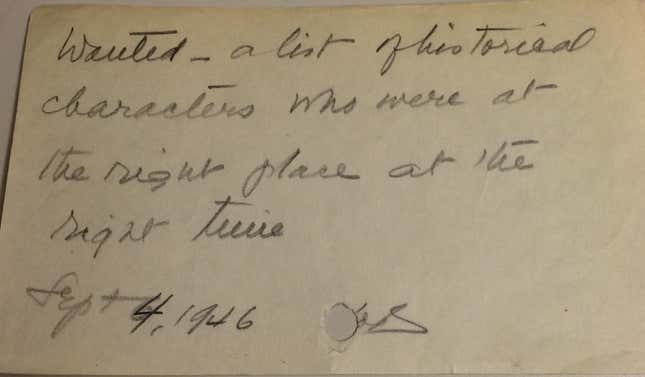 Wanted – a list of historical
characters who were at
the right place at the
right time
Sept 4, 1946